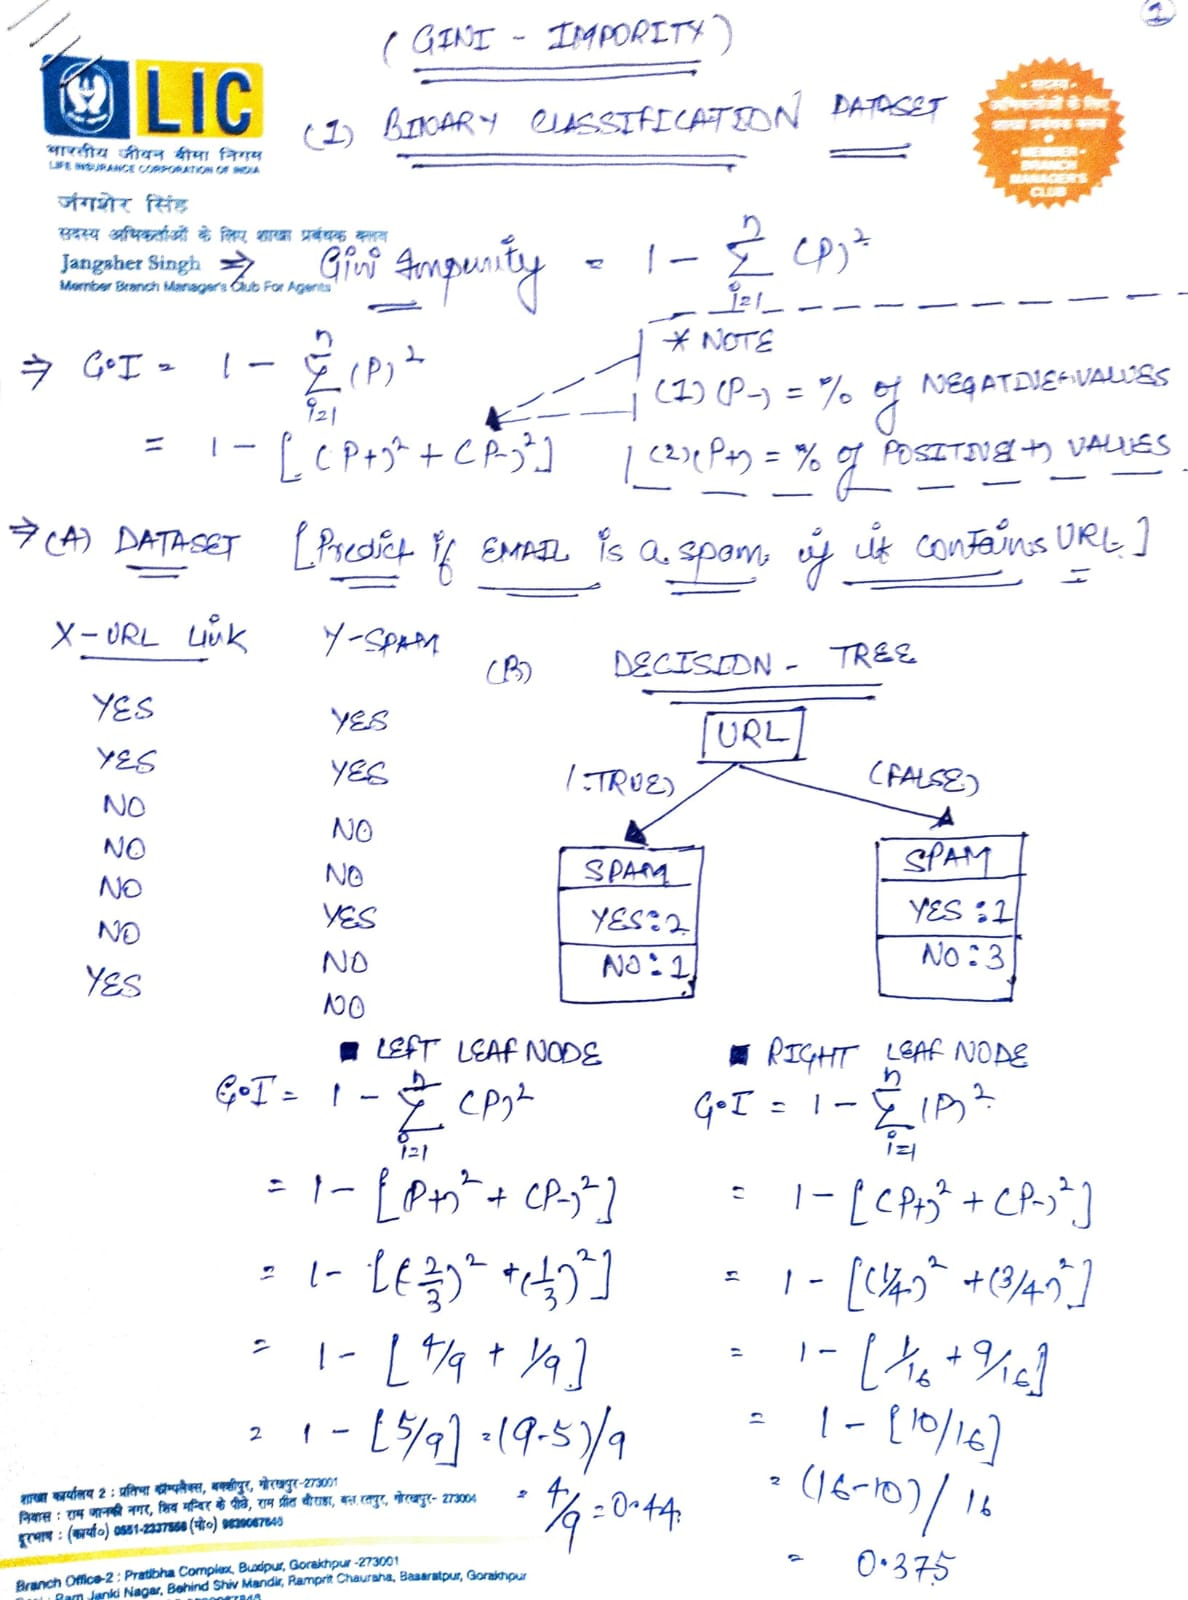 1
( GINI - IMPORITY )
LIC
(1) BINARY CLASSIFICATION DATASET
भारतीय जीवन बीमा निगम
LIFE INSURANCE CORPORATION OF INDIA
MEMBER
BRANCH
MANAGER'S
CLUB
जंगशेर सिंह
सदस्य अभिकर्ताओं के लिए शाखा प्रबंधक क्लब
Jangsher Singh
Member Branch Manager's Club For Agents
⇒ Gini Impurity = 1 - n Σ i=1 (P)²
⇒ G.I = 1 - n Σ i=1 (P)²
* NOTE
(1) (P-) = % of NEGATIVE(-) VALUES
= 1 - [(P+)² + (P-)²]
(2) (P+) = % of POSITIVE(+) VALUES
⇒ (A) DATASET [Predict if EMAIL is a spam if it contains URL.]
X-URL Link Y-SPAM
YES YES
YES YES
NO NO
NO NO
NO YES
NO NO
YES NO
(B) DECISION - TREE
URL
(TRUE) (FALSE)
SPAM
YES:2
NO:1
SPAM
YES:1
NO:3
■ LEFT LEAF NODE
G.I = 1 - n Σ i=1 (P)²
= 1 - [(P+)² + (P-)²]
= 1 - [(2/3)² + (1/3)²]
= 1 - [4/9 + 1/9]
= 1 - [5/9] = (9-5)/9
= 4/9 = 0.44.
■ RIGHT LEAF NODE
G.I = 1 - n Σ i=1 (P)²
= 1 - [(P+)² + (P-)²]
= 1 - [(1/4)² + (3/4)²]
= 1 - [1/16 + 9/16]
= 1 - [10/16]
= (16-10) / 16
= 0.375
शाखा कार्यालय 2 : प्रतिभा कॉम्पलैक्स, बक्शीपुर, गोरखपुर-273001
निवास : राम जानकी नगर, शिव मन्दिर के पीछे, राम प्रीत चौराहा, बसारतपुर, गोरखपुर- 273004
दूरभाष : (कार्या०) 0551-2337556 (मो०) 9839067640
Branch Office-2 : Pratibha Complex, Buxipur, Gorakhpur -273001
Ram Janki Nagar, Behind Shiv Mandir, Ramprit Chauraha, Basaratpur, Gorakhpur